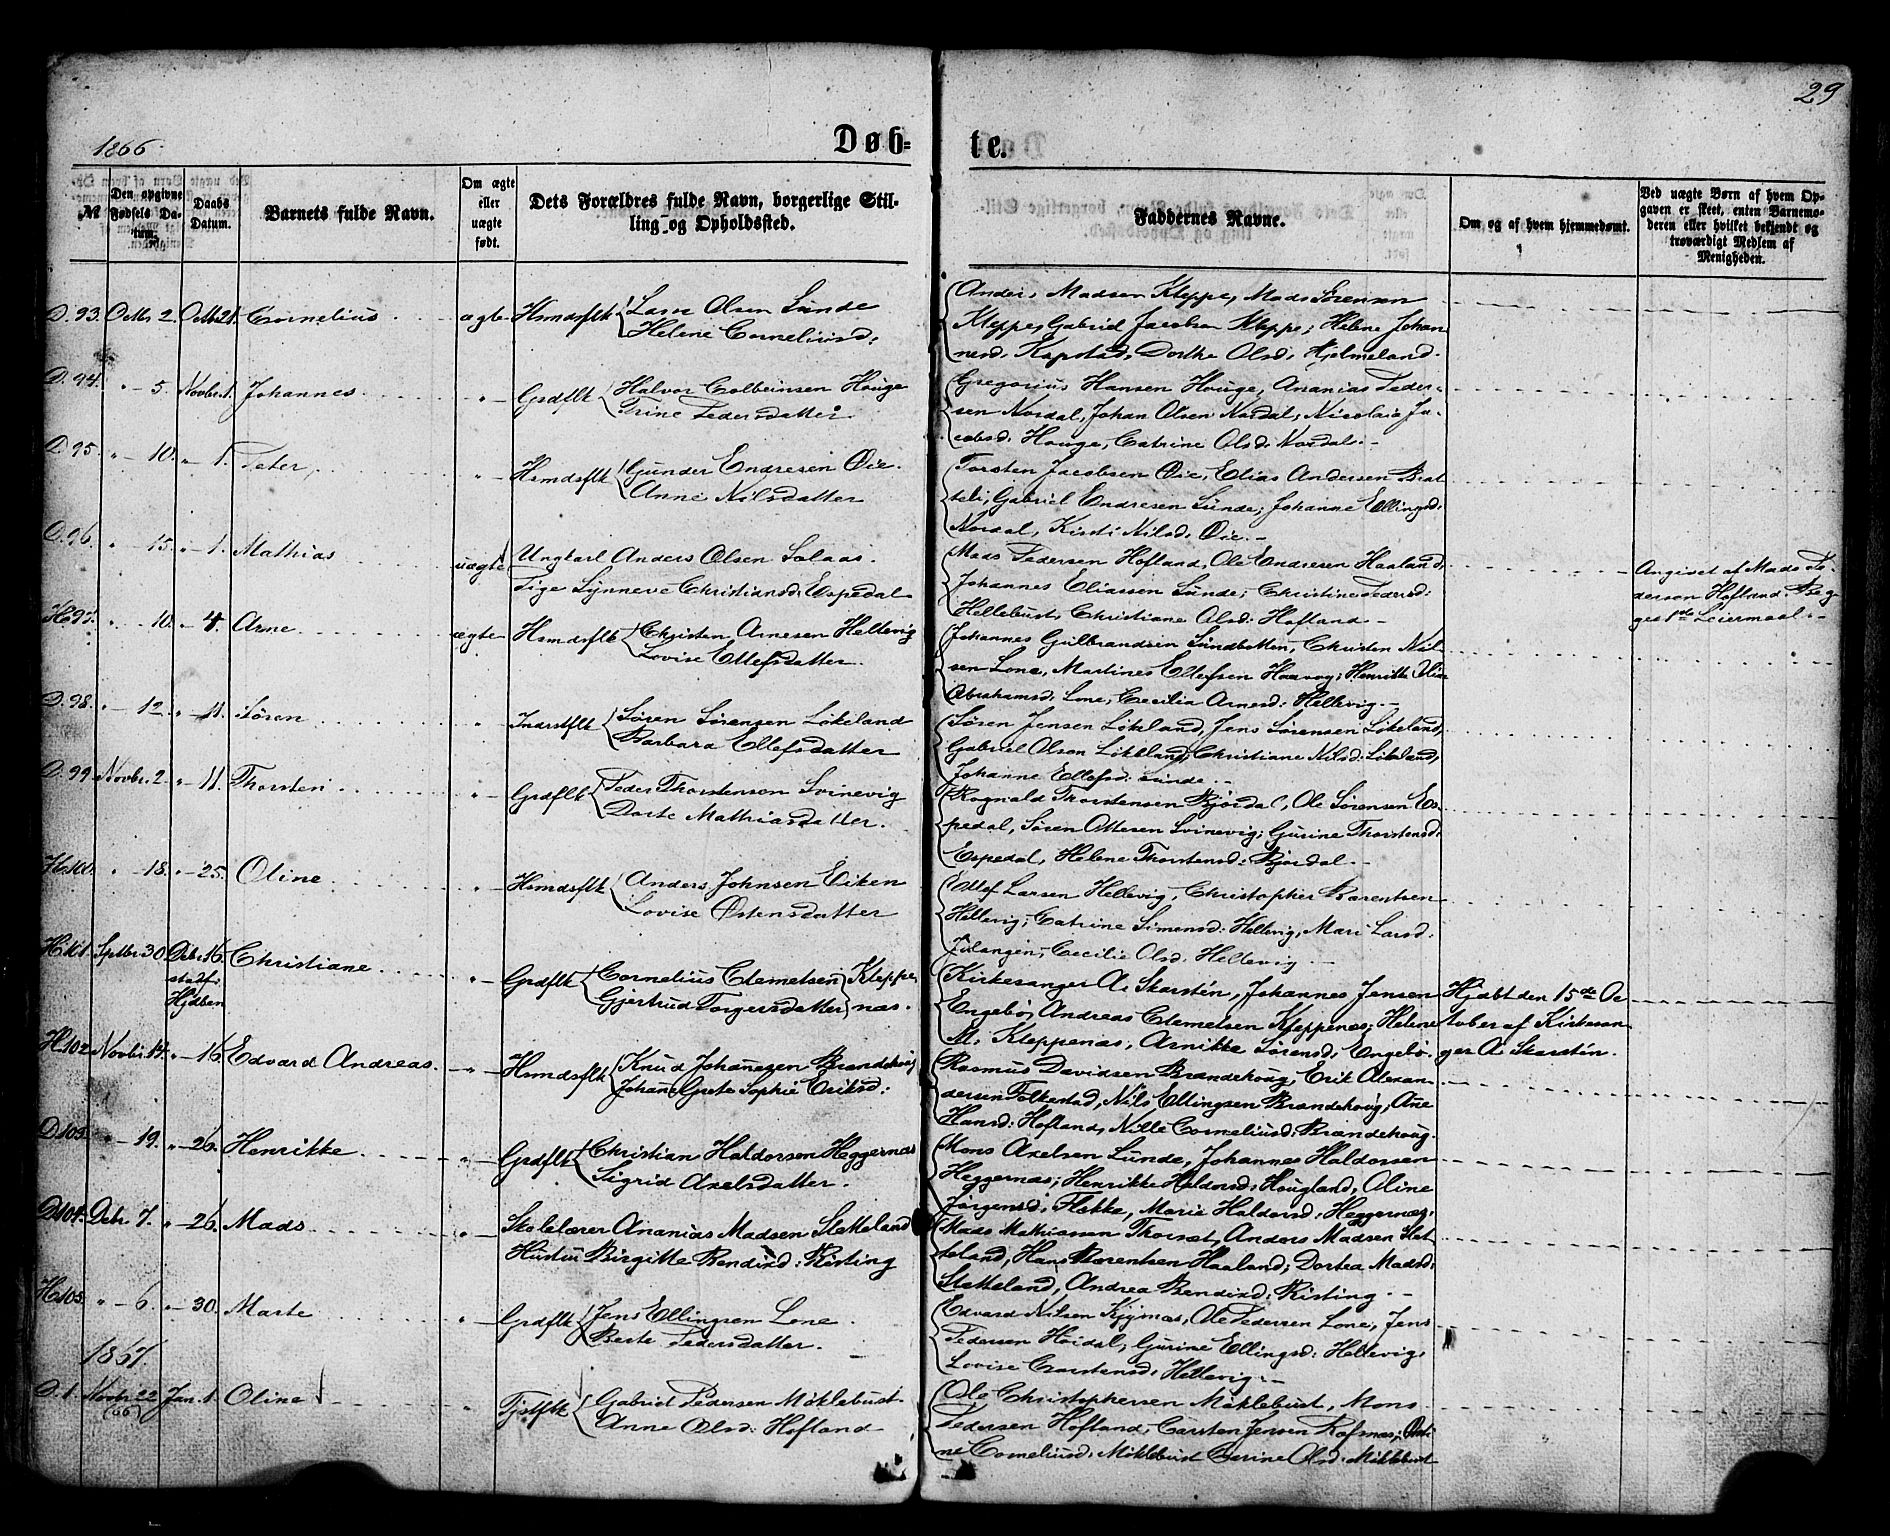 29
1866.
Døb=
te.
№
Den opgivne Fødsels Datum.
Daabs Datum.
Barnets fulde Navn.
Om ægte eller uægte født.
Dets Forældres fulde Navn, borgerlige Stilling og Opholdssted.
Faddernes Navne.
Om og af hvem hjemmedøbt.
Ved uægte Børn af hvem Opgaven er skeet, enten Barnemoderen eller hvilket bekjendt og troværdigt Medlem af Menigheden.
D. 93. Octbr 2. Octbr 21. Cornelius ægte Hsmdsflk Lasse Olsen Sunde
Helene Corneliusd:
Anders Madsen Kleppe, Mads Sørensen
Kleppe, Gabriel Jacobsen Kleppe; Helene Johan-
nesd. Kapstad, Dorthe Olsd. Hjelmeland.
D. 94. " - 5. Novbr. 1. Johannes " - Grdflk Halvor Colbeinsen Houge
Trine Pedersdatter
Gregorius Hansen Houge, Ananias Peder-
sen Nordal, Johan Olsen Nordal; Nicolaia Ja-
cobsd. Houge, Catrine Olsd. Nordal. -
D. 95. " - 10. " - 1. Peter, " - Hsmdsflk Gunder Endresen Øie.
Anne Nilsdatter
Torsten Jacobsen Øie, Elias Andersen Brat
teli, Gabriel Endresen Sunde; Johanne Ellingsd:
Nordal, Kirsti Nilsd. Øie. -
D. 96. " - 15. " - 1. Mathias uægte Ungkarl Anders Olsen Solaas.
Pige Synneve Christiansd: Espedal
Mads Pedersen Hofland, Ole Endresen Haaland,
Johannes Eliassen Sunde; Christine Pedersd:
Hellebust, Christiane Olsd: Hofland -
Angivet af Mads Pe-
dersen Hofland. Beg-
ges 1ste Leiermaal. -
H. 97. " - 10. " - 4. Arne ægte Hsmdsflk Christen Arnesen Hellevig
Lovise Ellefsdatter.
Johannes Gulbrandsen Sundbotten, Christen Nil-
sen Lone, Martines Ellefsen Haavog; Henrikke Olia
Abrahamsd. Lone, Cecilia Arnesd: Hellevig. -
D. 98. " - 12. " - 11. Søren " Indrstflk Søren Sørensen Løkeland
Barbara Ellefsdatter
Søren Jensen Løkeland, Jens Sørensen Løkeland,
Gabriel Olsen Løkeland; Christiane Nilsd: Løkeland,
Johanne Ellefsd: Sunde. -
D. 99 Novbr. 2. " - 11. Thorsten " - Grdflk Peder Thorstensen Svinevig
Dorte Mathiasdatter.
Rognald Thorstensen Bjordal, Ole Sørensen Es-
pedal, Søren Ottesen Svinevig; Gurine Thorstensd:
Espedal, Helene Thorstensd: Bjordal. -
H. 100. " - 18. " - 25. Oline " - Hsmdsflk Anders Johnsen Eiken
Lovise Østensdatter
Ellef Larsen Hellevig, Christopher Barentsen
Hellevig; Catrine Simensd: Hellevig, Mari Larsd:
Cecilie Olsd: Hellevig -
H. 101. Sptbr. 30. Debr 16. Christiane " Grdflk Cornelius Clemetsen Kleppe
stadf.
Hjdben
Gjertrud Torgersdatter næs.
Kirkesanger A. Skarstén, Johannes Jensen
Engebø, Andreas Clemetsen Kleppenæs; Helene
M. Kleppenæs, Arnikke Sørensd: Engebø.
Hjdbt den 15de Oc
tober af Kirkesan
ger A. Skarstén.
H. 102 Novbr. 14. " - 16. Edvard Andreas. " - Hsmdsflk Knud Johannesen Brandehoug
Johane Grete Sophie Eriksd:
Rasmus Davidsen Brandehoug, Erik Alexan-
dersen Folkestad, Nils Ellingsen Brandehoug, Ane
Hansd: Hofland, Nille Corneliusd: Brandehoug.
D. 103. " - 19. " - 26. Henrikke " - Grdflk Christian Haldorsen Heggernæs
Sigrid Axelsdatter.
Mons Axelsen Sunde, Johannes Haldorsen
Heggernæs; Henrikke Haldorsd: Hougland, Oline
Jørgensd: Flekke, Marie Haldorsd: Heggernæs.
D. 104. Debr. 7. " - 26. Mads " - Skolelærer Ananias Madsen Sletteland
Hustru Birgitte Bendixd: Risting
Mads Mathiassen Anders Madsen Slet
teland, Hans Barentsen Haaland; Dortea Madsd:
Sletteland, Andrea Bendixd: Risting. -
H. 105. " - 6. " - 30. Marte " - Grdflk Jens Ellingsen Lone.
Berte Pedersdatter.
Edvard Nilsen Ole Pedersen Lone, Jens
Pedersen Høidal, Gurine Ellingsd: Hellevig,
Lovise Hellevig. -
1867.
D. 1. Novbr. 22 Jan. 1. Oline " Tjstflk Gabriel Pedersen Møklebust
(66)
Anne Olsd: Hofland
Ole Christophersen Møklebust, Mons
Pedersen Hofland, Carsten Jensen
ne Corneliusd: Møklebust, Olsd: Møklebust